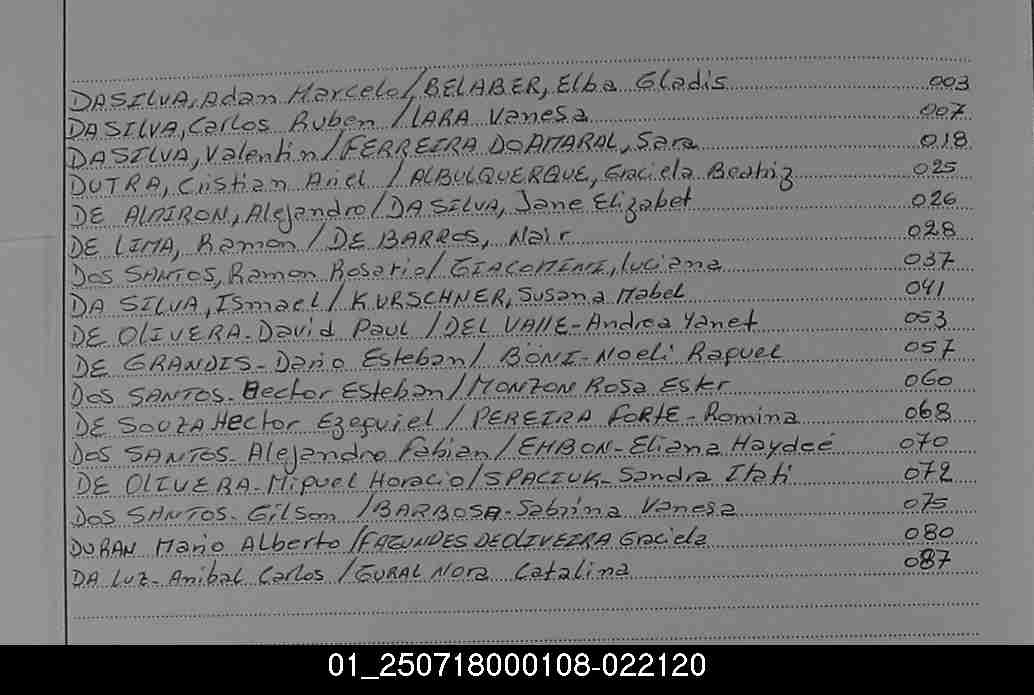 DASILVA, Adan Marcelo / BELABER, Elba Gladis 003
DA SILVA, Carlos Ruben / LARA Vanesa 007
DASILVA, Valentin / FERREIRA DOAMARAL, Sara 018
DUTRA, Cristian Ariel / ALBULQUERQUE, Graciela Beatriz 025
DE ALMIRON, Alejandro / DA SILVA, Jane Elizabet 026
DE LIMA, Ramon / DE BARROS, Nair 028
DOS SANTOS, Ramon Rosario / GIACOMINI, Luciana 037
DA SILVA, Ismael / KURSCHNER, Susana Mabel 041
DE OLIVERA - David Paul / DEL VALLE - Andrea Yanet 053
DE GRANDIS - Dario Esteban / BÖNI - Noeli Raquel 057
DOS SANTOS - Hector Esteban / MONZON Rosa Ester 060
DE SOUZA Hector Ezequiel / PEREIRA FORTE - Romina 068
DOS SANTOS - Alejandro Fabian / EHBON - Eliana Haydeé 070
DE OLIVERA - Miguel Horacio / SPACIUK - Sandra Itati 072
DOS SANTOS - Gilson / BARBOSA - Sabrina Vanesa 075
DURAN Mario Alberto / FAGUNDES DE OLIVEIRA Graciela 080
DA LUZ - Anibal Carlos / GURAL Nora Catalina 087
01_250718000108-022120